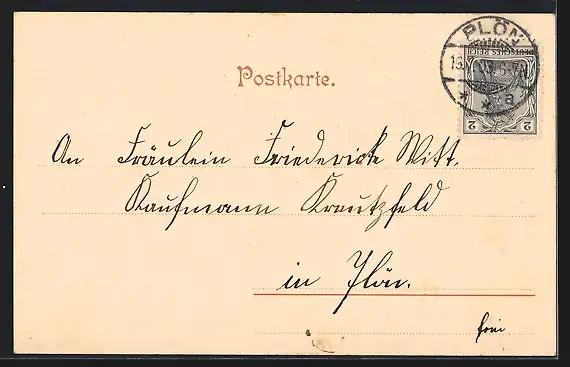 PLÖN
DEUTSCHES REICH
2 2
* * a
Postkarte.
An Fräulein Friederick Witt.
Kaufmann Kreutzfeld
in Plön.
frei